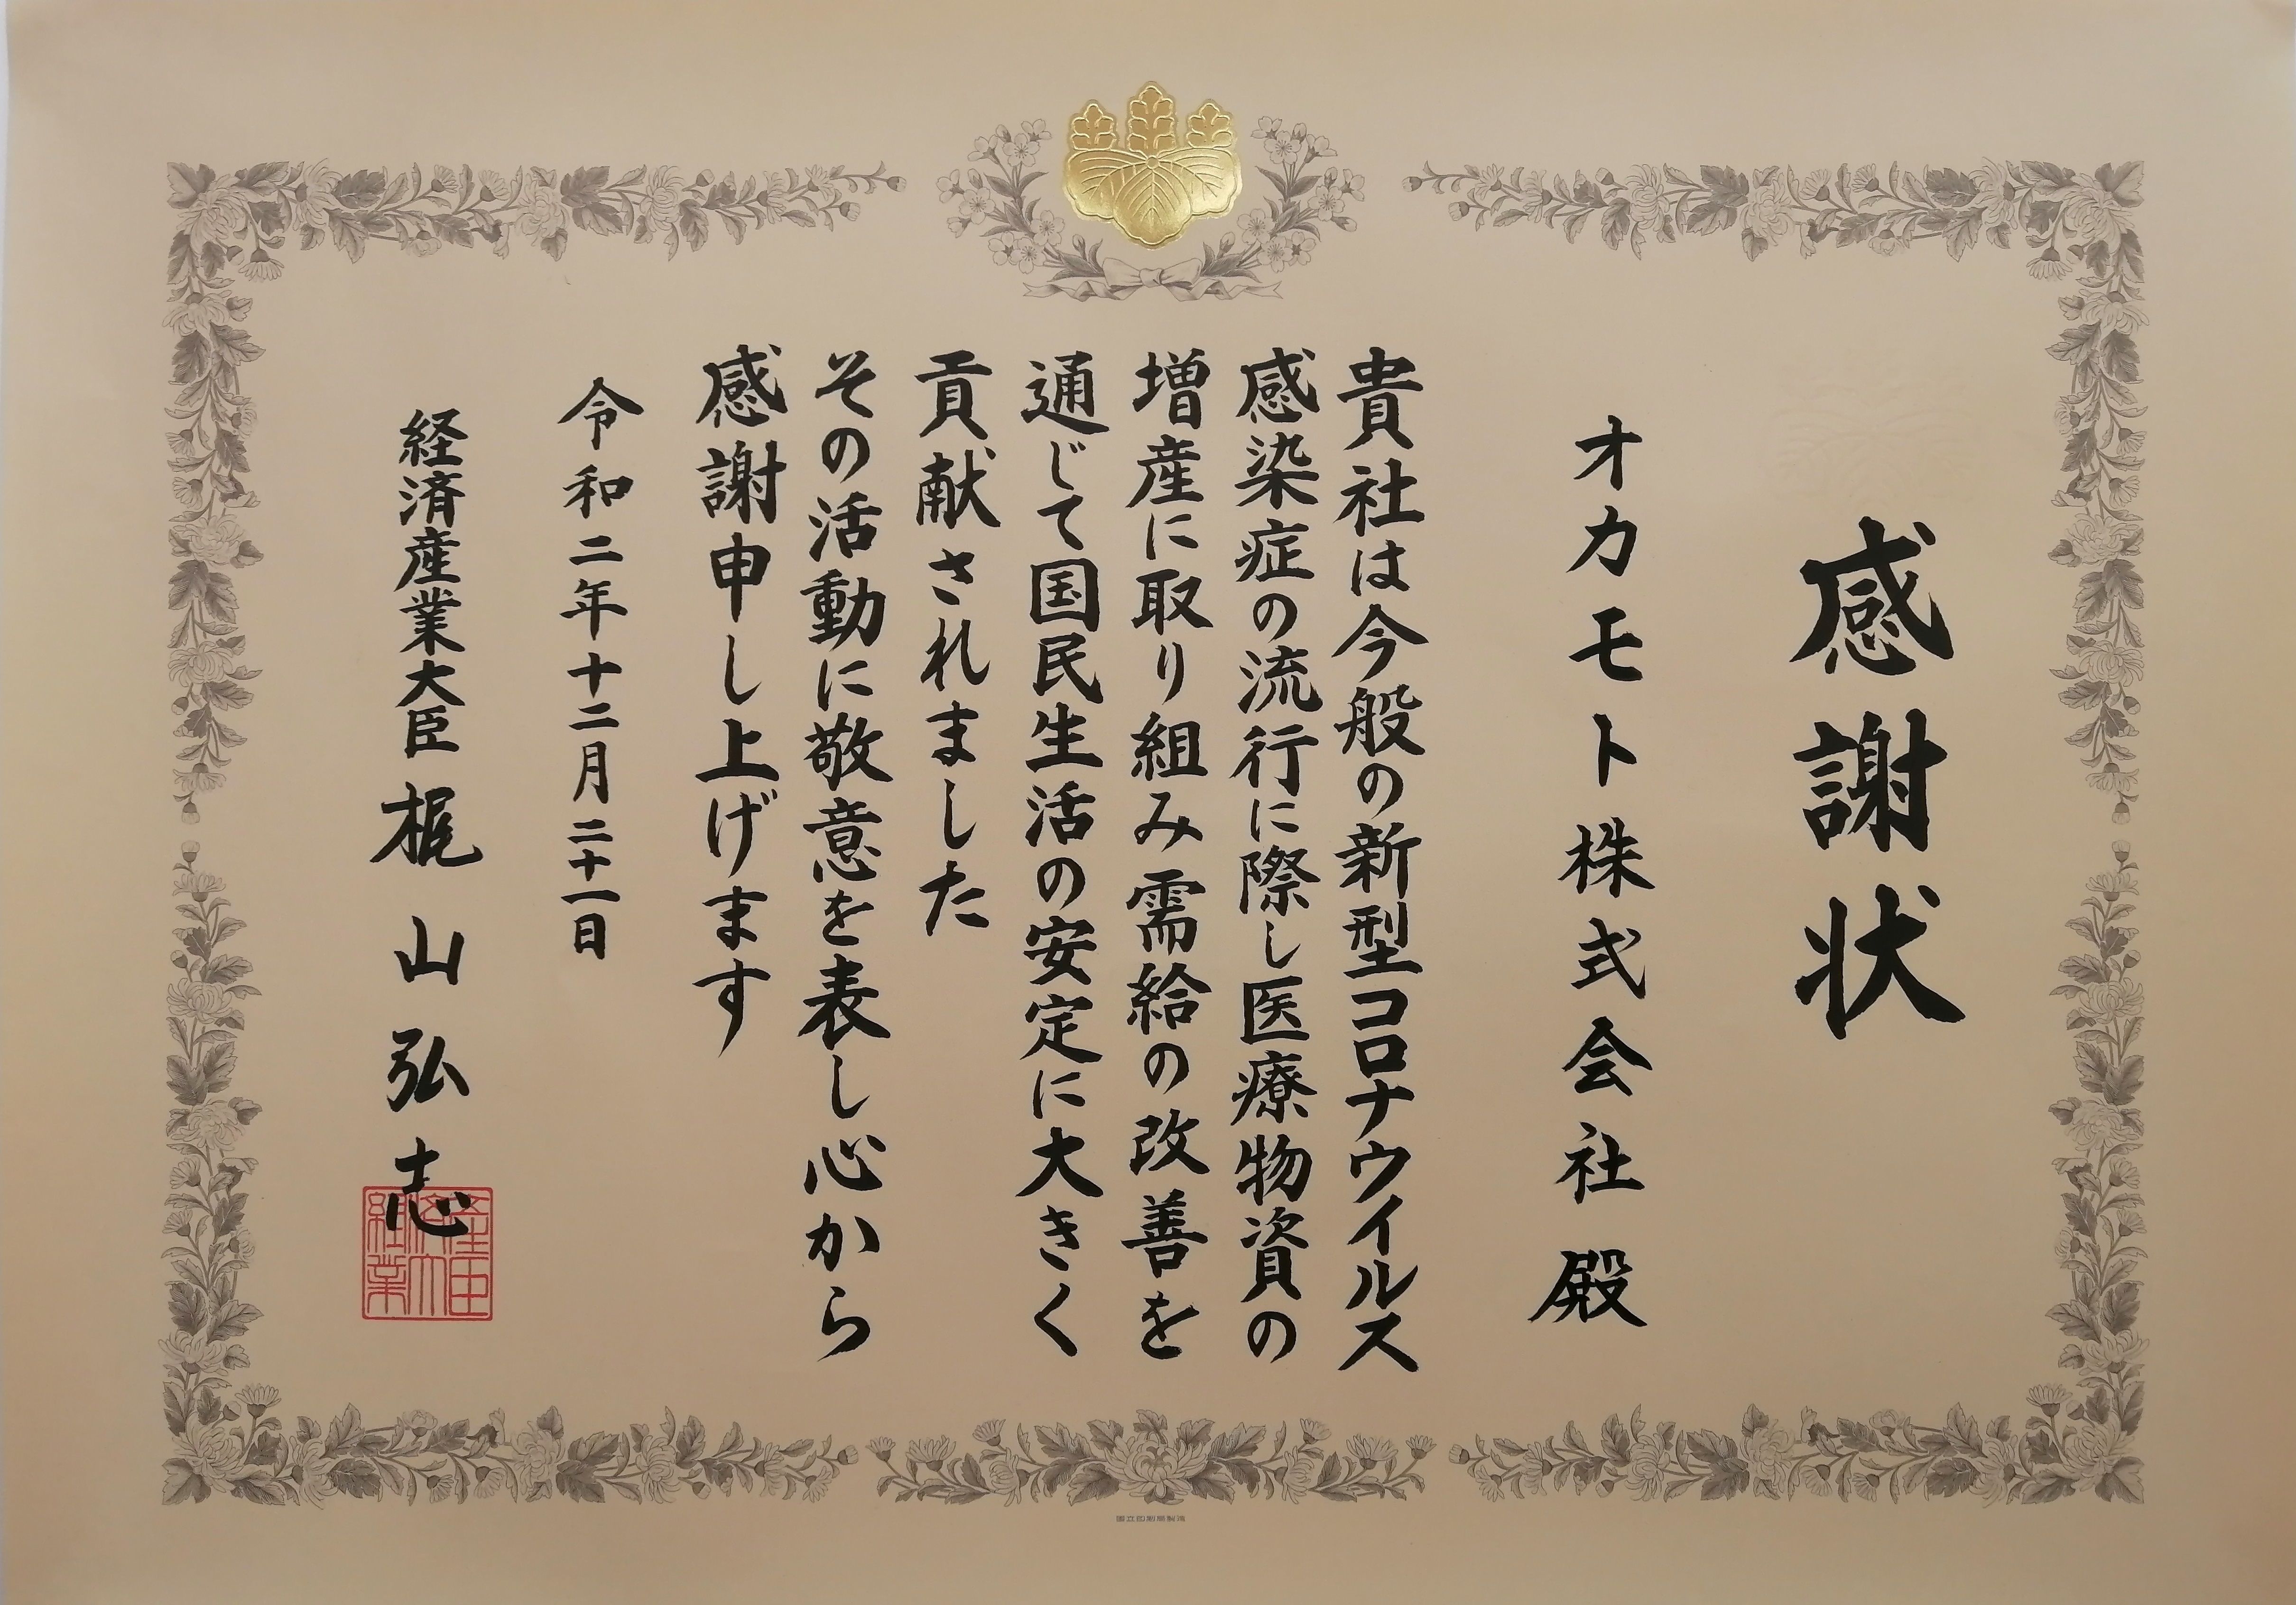 感謝状
オカモト株式会社殿
貴社は今般の新型コロナウイルス
感染症の流行に際し医療物資の
増産に取り組み需給の改善を
通じて国民生活の安定に大きく
貢献されました
その活動に敬意を表し心から
感謝申し上げます
令和二年十二月二十一日
経済産業大臣梶山弘志